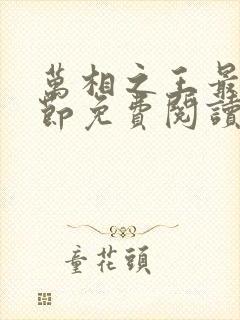 萬相之王最
節免費閱讀
童花頭